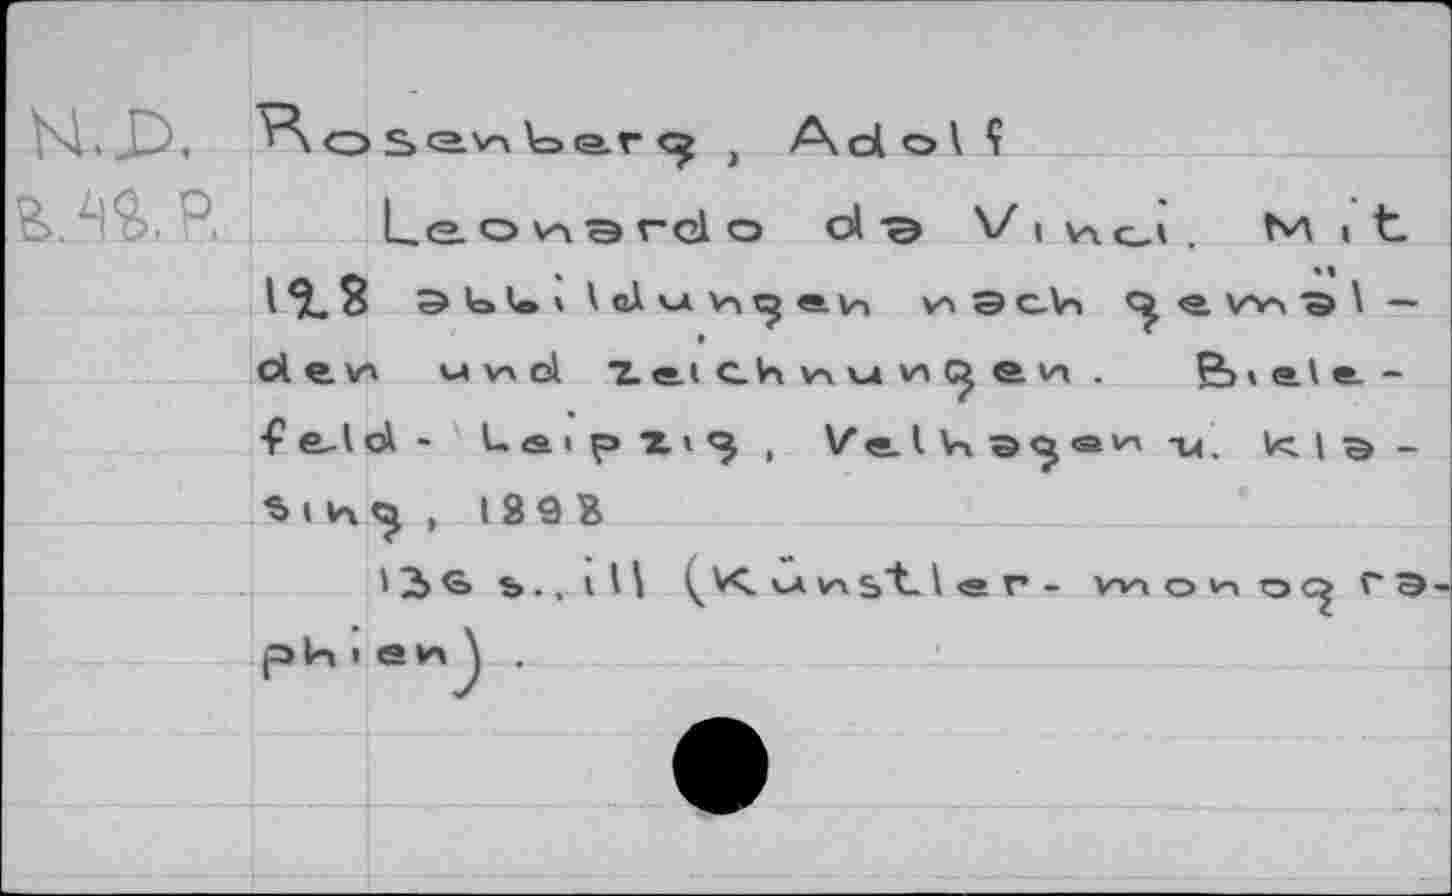 N.D. Rosenberg, Adolf
B.48.P. Leonardo da Vinci. Mit
128 abbildungen nach gemäl-
den und zeichnungen. Biele-
feld - Leipzig, Velhagen u. kla-
sing, 1898
136 s., ill (Künstler-monogra-
phien).